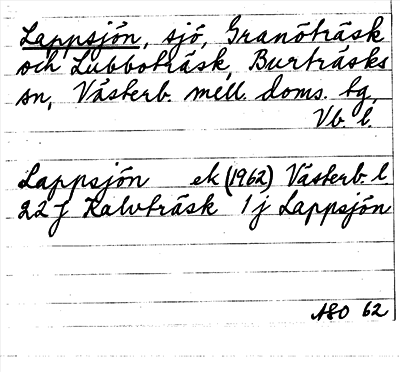 Lappsjön, sjö, Granöträsk
och Lubboträsk, Burträsks
sn, Västerb. mell. doms. tg,
Vb. l.
Lappsjön ek (1962) Västerb. l.
22 J Kalvträsk 1 j Lappsjön
ASO 62